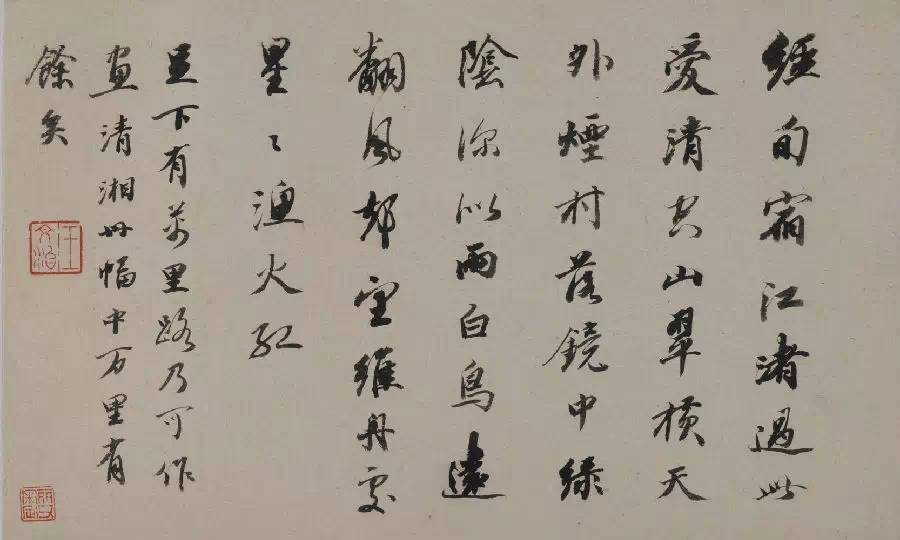 經旬宿江渚過此
愛清空山翠橫天
外煙村落鏡中綠
陰深似雨白鳥遠
翻風却望維舟處
星〻漁火紅
足下有萬里路乃可作
畫清湘卌幅中万里有
餘矣
王文治